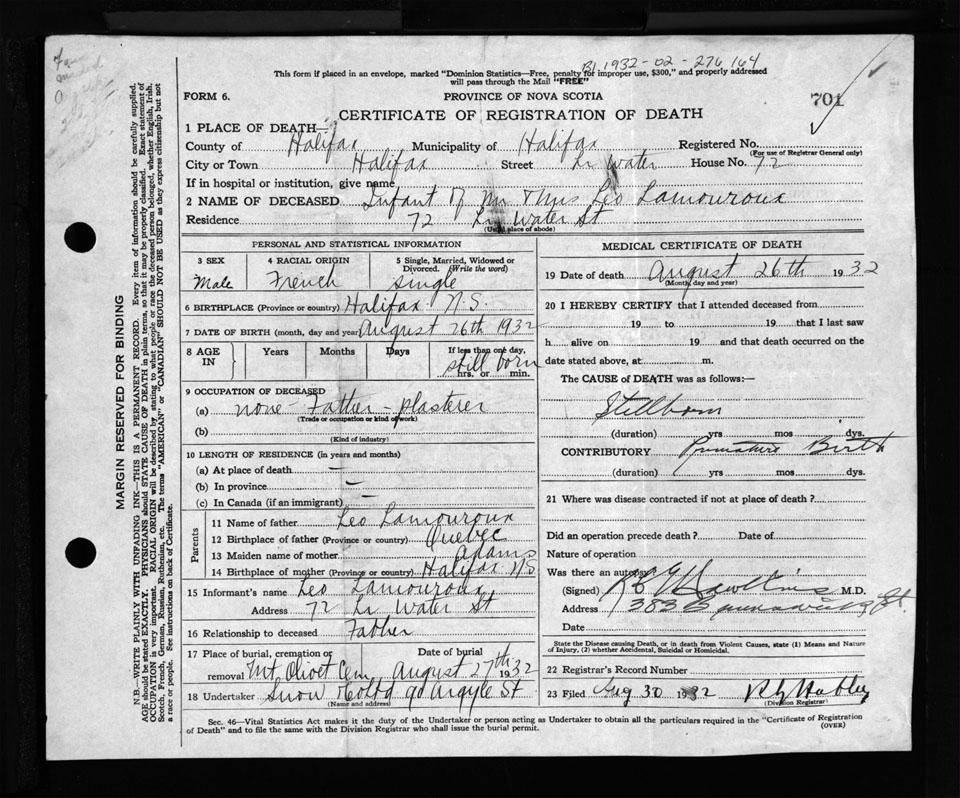 B1.1932-02-276164
This form if placed in an envelope, marked "Dominion Statistics—Free, penalty for improper use, $300," and properly addressed
will pass through the Mail "FREE"
FORM 6.
PROVINCE OF NOVA SCOTIA
701
CERTIFICATE OF REGISTRATION OF DEATH
1 PLACE OF DEATH—
County of Halifax Municipality of Halifax Registered No.
(For use of Registrar General only)
City or Town Halifax Street Lr Water House No. 72
If in hospital or institution, give name
2 NAME OF DECEASED Infant Of Mr & Mrs Leo Lamouroux
Residence 72 Lr Water St
(Usual place of abode)
PERSONAL AND STATISTICAL INFORMATION
3 SEX
Male
4 RACIAL ORIGIN
French
5 Single, Married, Widowed or Divorced. (Write the word)
Single
6 BIRTHPLACE (Province or country) Halifax N.S.
7 DATE OF BIRTH (month, day and year) August 26th 1932
8 AGE IN
Years
Months
Days
If less than one day,
still born
hrs. or min.
9 OCCUPATION OF DECEASED
(a) none - Father - plasterer
(Trade or occupation or kind of work)
(b)
(Kind of industry)
10 LENGTH OF RESIDENCE (in years and months)
(a) At place of death —
(b) In province —
(c) In Canada (if an immigrant) —
Parents
11 Name of father Leo Lamouroux
12 Birthplace of father (Province or country) Quebec
13 Maiden name of mother Adams
14 Birthplace of mother (Province or country) Halifax N.S
15 Informant's name Leo Lamouroux
Address 72 Lr Water St
16 Relationship to deceased Father
17 Place of burial, cremation or removal Mt Olivet Cem
Date of burial
August 27th 1932
18 Undertaker Snow & Co Ltd 90 Argyle St
(Name and address)
MEDICAL CERTIFICATE OF DEATH
19 Date of death August 26th 1932
(Month, day and year)
20 I HEREBY CERTIFY that I attended deceased from
19 to 19 that I last saw
h alive on 19 and that death occurred on the
date stated above, at m.
The CAUSE of DEATH was as follows:—
Stillborn
(duration) yrs mos dys.
CONTRIBUTORY Premature Birth
(duration) yrs mos dys.
21 Where was disease contracted if not at place of death ?
Did an operation precede death ? Date of
Nature of operation
Was there an autopsy
(Signed) M.D.
Address 383 Brunswick St
Date
State the Disease causing Death, or in death from Violent Causes, state (1) Means and Nature
of Injury, (2) whether Accidental, Suicidal or Homicidal.
22 Registrar's Record Number
23 Filed Aug 30 1932
(Division Registrar)
Sec. 46—Vital Statistics Act makes it the duty of the Undertaker or person acting as Undertaker to obtain all the particulars required in the "Certificate of Registration
of Death" and to file the same with the Division Registrar who shall issue the burial permit.
(OVER)
MARGIN RESERVED FOR BINDING
N.B.—WRITE PLAINLY WITH UNFADING INK—THIS IS A PERMANENT RECORD. Every item of information should be carefully supplied.
AGE should be stated EXACTLY. PHYSICIANS should STATE CAUSE OF DEATH in plain terms, so that it may be properly classified. Exact statement of
OCCUPATION is very important. RACIAL ORIGIN will be described by stating to what people or race the deceased person belonged, whether English, Irish,
Scotch, French, German, Russian, Ruthenian, etc. The terms "AMERICAN" or "CANADIAN" SHOULD NOT BE USED as they express citizenship but not
a race or people. See instructions on back of Certificate.